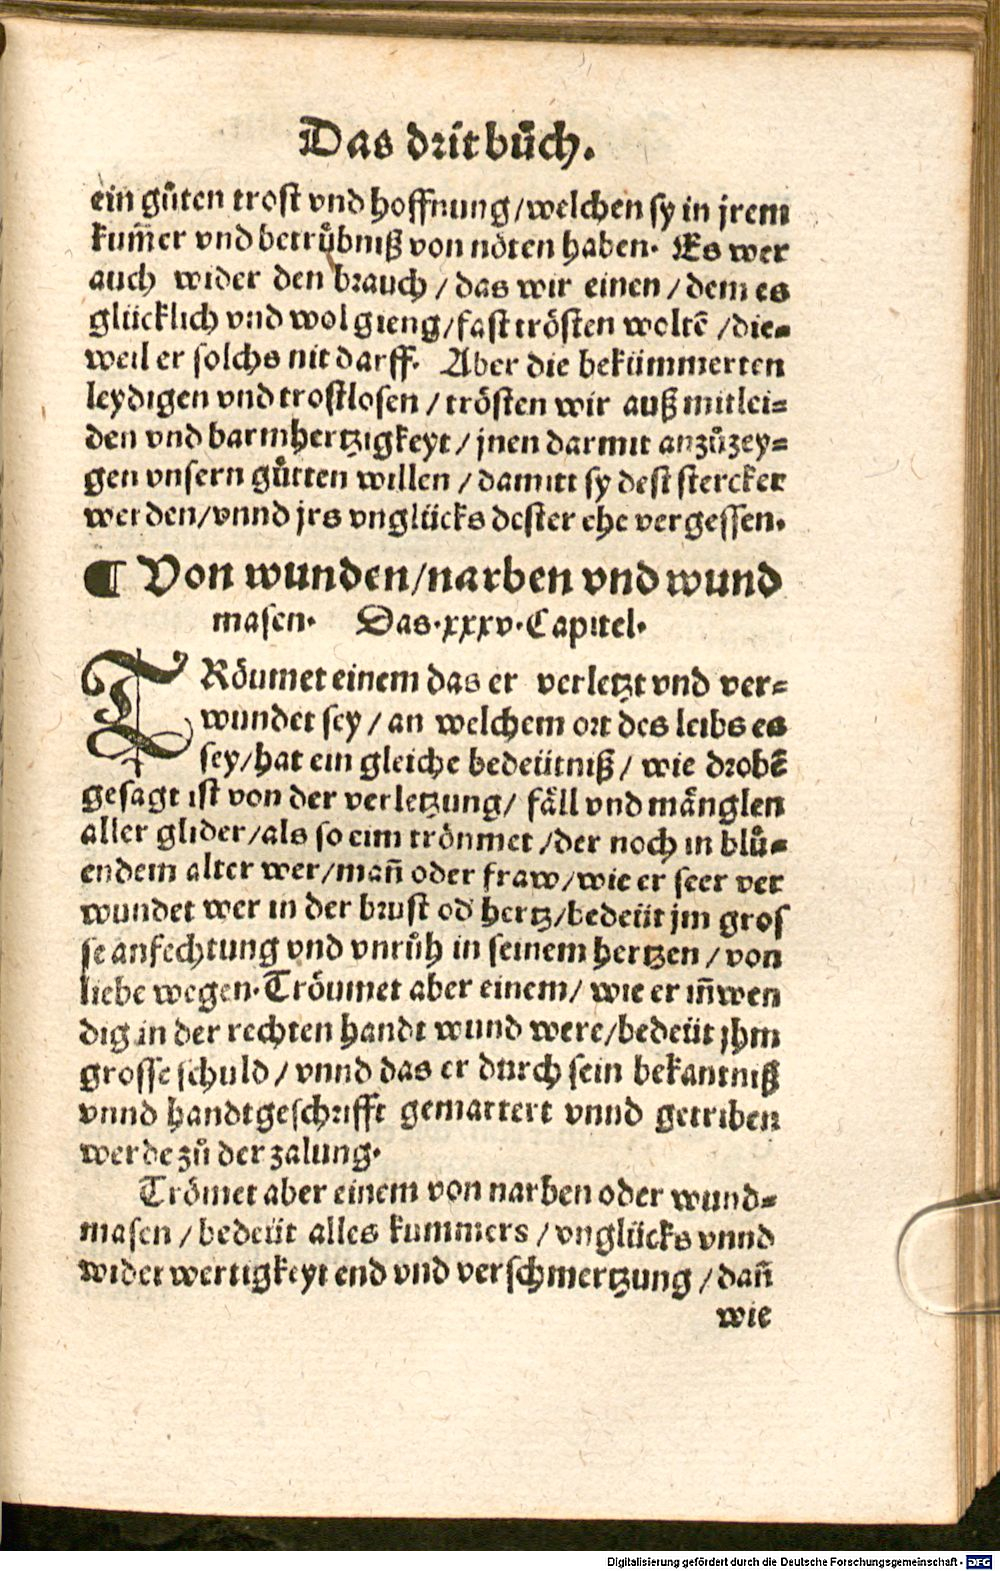 Das drit bůch.
ein gůten trost vnd hoffnung/welchen sy in jrem
kum̃er vnd betrůbniß von nöten haben. Es wer
auch wider den brauch/das wir einen/dem es
glücklich vnd wol gieng/fast trösten woltẽ/die-
weil er solchs nit darff. Aber die bekümmerten
leydigen vnd trostlosen/trösten wir auß mitlei-
den vnd barmhertzigkeyt/jnen darmit anzůzey-
gen vnsern gůtten willen/damitt sy dest stercker
werden/vnnd jrs vnglücks dester ehe vergessen.
¶ Von wunden/narben vnd wund
masen. Das.xxxv.Capitel.
TRöumet einem das er verletzt vnd ver-
wundet sey/an welchem ort des leibs es
sey/hat ein gleiche bedeütniß/wie drobẽ
gesagt ist von der verletzung/fäll vnd mänglen
aller glider/als so eim trönmet/der noch in blů-
endem alter wer/mañ oder fraw/wie er seer ver
wundet wer in der brust od hertz/bedeüt jm gros
se anfechtung vnd vnrůh in seinem hertzen/von
liebe wegen. Tröumet aber einem/wie er iñwen
dig in der rechten handt wund were/bedeüt jhm
grosse schuld/vnnd das er durch sein bekantniß
vnnd handtgeschrifft gemartert vnnd getriben
werde zů der zalung.
Trömet aber einem von narben oder wund-
masen/bedeüt alles kummers/vnglücks vnnd
widerwertigkeyt end vnd verschmertzung/dañ
wie
Digitalisierung gefördert durch die Deutsche Forschungsgemeinschaft - DFG